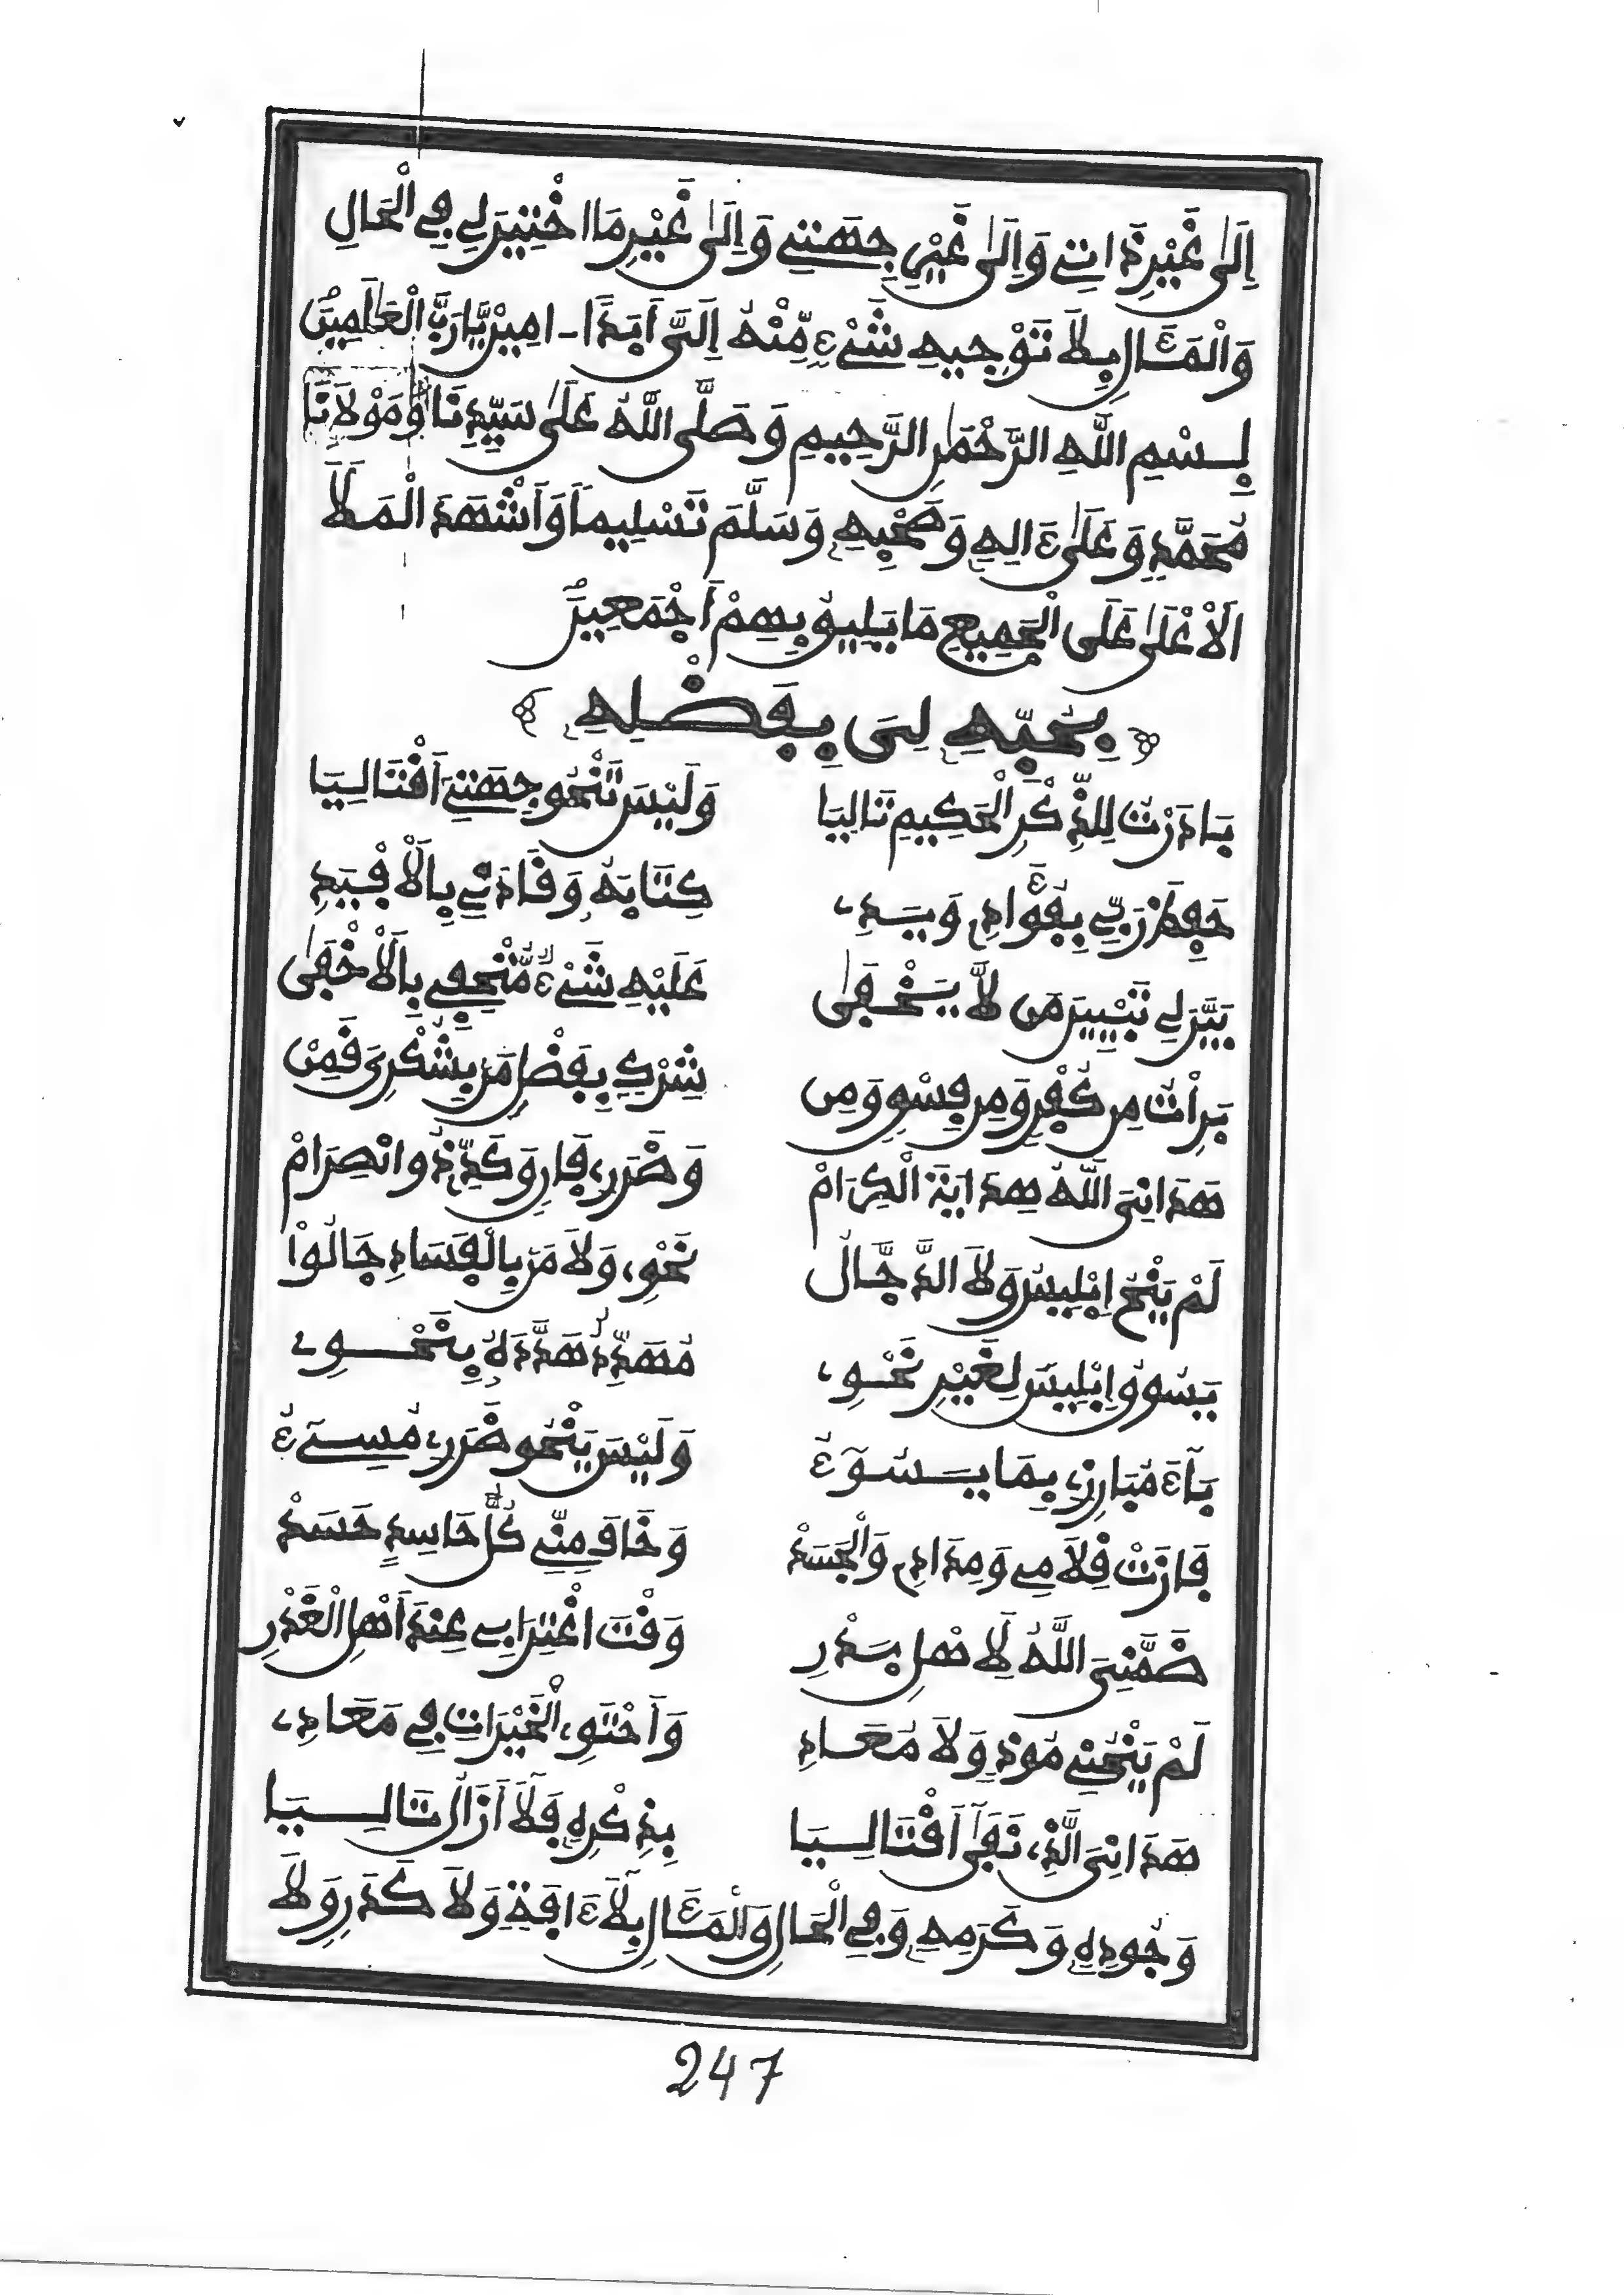 إِلَىٰ غَيْرِ ذَاتِي وَإِلَىٰ غَيْرِ جِهَتِي وَإِلَىٰ غَيْرِ مَا اخْتِيرَ لِي فِي الْحَالِ
وَالْمَـَٔالِ بِلَا تَوْجِيهِ شَيْءٍ مِّنْهُ إِلَيَّ أَبَدًا - امِينْ يَّارَبَّ الْعَٰلَمِينَ
بِسْمِ اللَّهِ الرَّحْمَٰنِ الرَّحِيمِ وَصَلَّى اللَّهُ عَلَىٰ سَيِّدِنَا وَمَوْلَانَا
مُحَمَّدٍ وَعَلَىٰ ءَالِهِ وَصَحْبِهِ وَسَلَّمَ تَسْلِيماً وَأَشْهَدَ الْمَلَأَ
الْأَعْلَىٰ عَلَى الْجَمِيعِ مَا يَلِيقُ بِهِمْ أَجْمَعِينَ
بِحُبِّهِ لِيَ بِفَضْلِهِ
بَادَرْتُ لِلذِّكْرِ الْحَكِيمِ تَالِيَا وَلَيْسَ تَنْحُو جِهَتِي أَقْتَالِيَا
حَفِظَ رَبِّي بِفُؤَادِي وَيَدِي كِتَابَهُ وَقَادَنِي بِالْأَفْيَدِ
بَيَّنَ لِي تَبْيِينَ مَن لَّا يَخْفَىٰ عَلَيْهِ شَيْءٌ مُّتْحِفِي بِالْأَخْفَىٰ
بَرِأْتُ مِن كُفْرٍ وَمِن فِسْقٍ وَمِن شِرْكٍ بِفَضْلِ مَن بِشُكْرِي قَمِنْ
هَدَانِيَ اللَّهُ هِدَايَةَ الْكِرَامْ وَضَرَرِي فَانٍ وَكَدِّي ذُو انْصِرَامْ
لَمْ يَنْحُ إِبْلِيسُ وَلَا الدَّجَّالُ نَحْوِي وَلَا مَن بِالْفَسَادِ جَالُواْ
يَسُوقُ إِبْلِيسَ لِغَيْرِ نَحْوِي مُهَدِّدٌ هَدَّدَهُ بِنَحْوِي
بَآءَ مُبَارِزِي بِمَا يَسُوٓءُ وَلَيْسَ يَنْحُو ضَرَرِي مُسِيٓءُ
فَازَتْ قِلَامِي وَمِدَادِي وَالْجَسَدْ وَخَافَ مِنِّي كُلُّ حَاسِدٍ حَسَدْ
ضَمَّنِيَ اللَّهُ لِأَهْلِ بَدْرِ وَقْتَ اغْتِرَابِي عِنْدَ أَهْلِ الْغَدْرِ
لَمْ يَنْحُنِي مُوذٍ وَلَا مُعَادِ وَأَحْتَوِي الْخَيْرَاتِ فِي مَعَادِي
هَدَانِيَ الَّذِي نَفَىٰ أَقْتَالِيَا بِذِكْرِهِ فَلَا أَزَالُ تَالِيَا
وَجُودِهِ وَكَرَمِهِ وَفِي الْحَالِ وَالْمَـَٔالِ بِلَا ءَافَةٍ وَلَا كَدَرٍ وَلَا
247